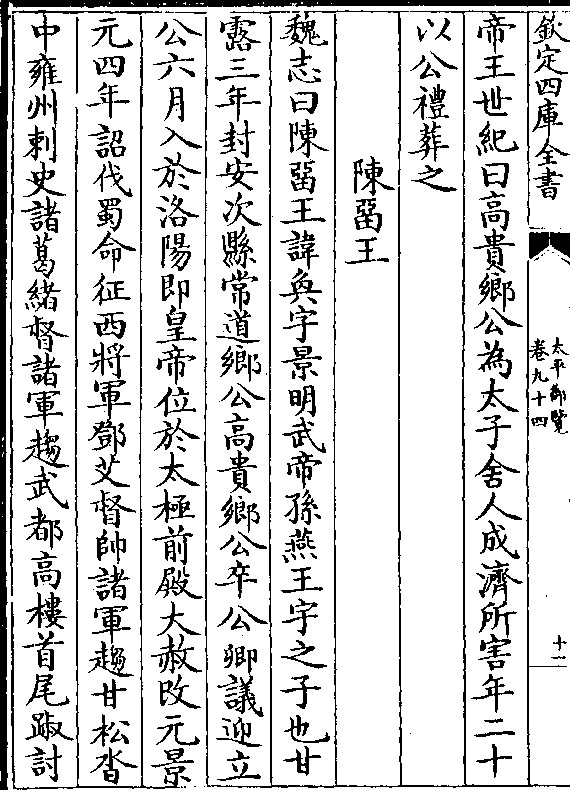 欽定四庫全書
太平御覽
卷九十四
十一
帝王世紀曰高貴鄉公為太子舍人成濟所害年二十
以公禮葬之
陳留王
魏志曰陳留王諱奐字景明武帝孫燕王宇之子也甘
露三年封安次縣常道鄉公高貴鄉公卒公卿議迎立
公六月入於洛陽即皇帝位於太極前殿大赦改元景
元四年詔伐蜀命征西將軍鄧艾督帥諸軍趨甘松沓
中雍州刺史諸葛緒督諸軍趨武都高樓首尾踧討